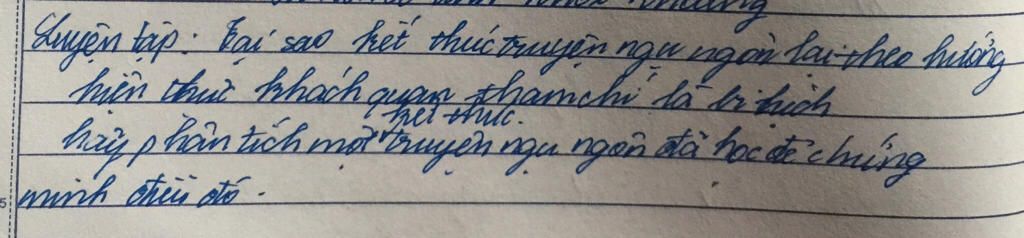 Luyện tập: Tại sao kết thúc truyện ngụ ngôn lại theo hướng
hiện thực khách quan thậm chí là bi kịch
kết thúc.
hãy phân tích một truyện ngụ ngôn đã học để chứng
minh điều đó.